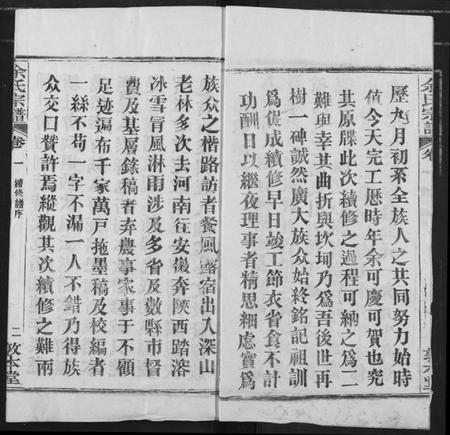 歷九月初系全族人之共同努力始時
值今天完工歷時年余可慶可賀也究
其原牒此次續修之過程可納之為二
難與幸其曲折與坎坷乃為吾後世再
樹一碑誠然廣大族眾始終銘記祖訓
為促成續修早日竣工節衣省食不計
功酬日以繼夜理事者精思細慮實為
余氏宗譜
卷一
續修譜序
二
敦本堂
族众之楷路訪者餐風露宿出入深山
老林多次去河南往安徽奔陝西踏溶
冰雪冐風淋雨涉及多省及數縣市督
費及基層錄稿者弃農事家事于不顧
足迹遍布千家萬戶拖墨稿及校編者
一絲不苟一字不漏一人不錯乃得族
众交口贊許焉縱觀其次續修之難兩